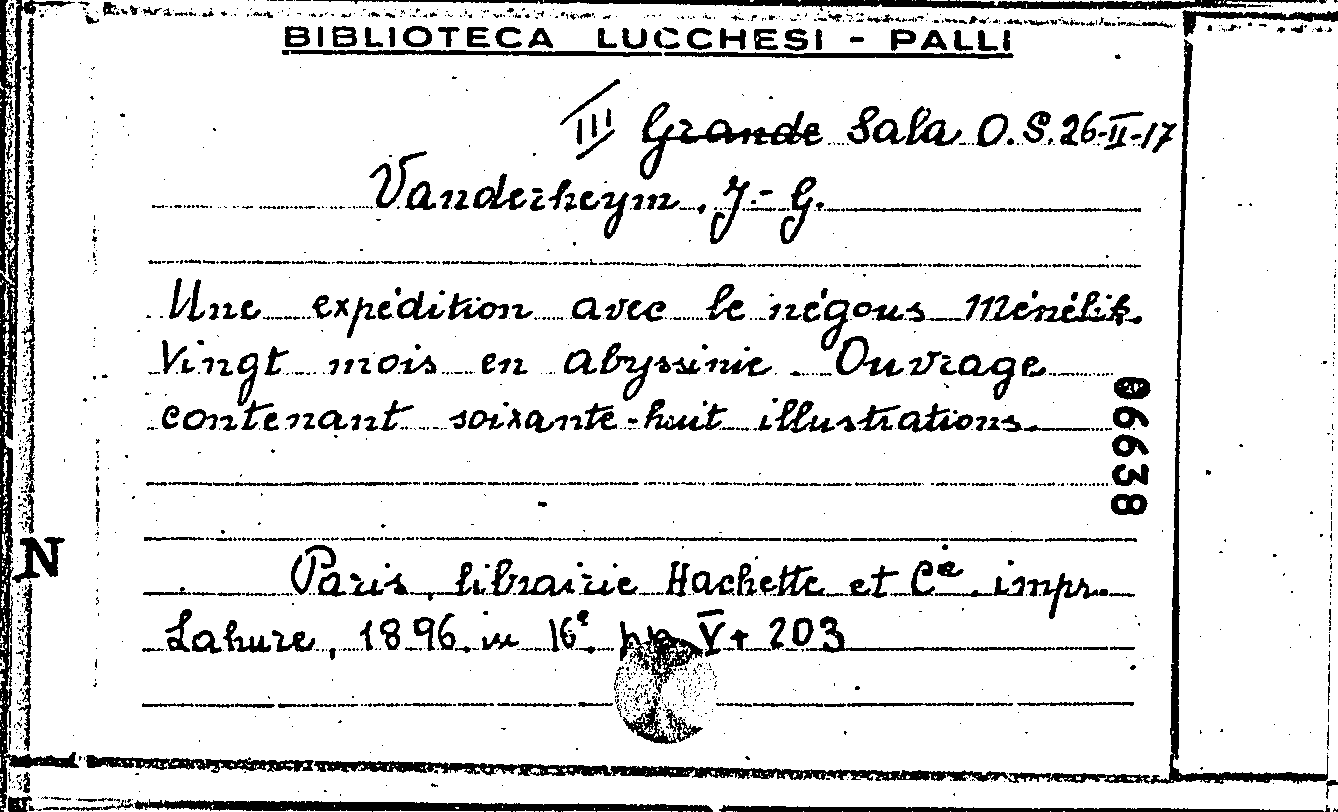 BIBLIOTECA LUCCHESI - PALLI
III Grande Sala O.S. 26-II-17
Vanderheym. J.-G.
Une expédition avec le négous Ménélik.
Vingt mois en Abyssinie. Ouvrage
contenant soixante-huit illustrations.
06638
N
Paris, librairie Hachette et Cie. impr.
Lahure, 1896. in 16°. pp V + 203